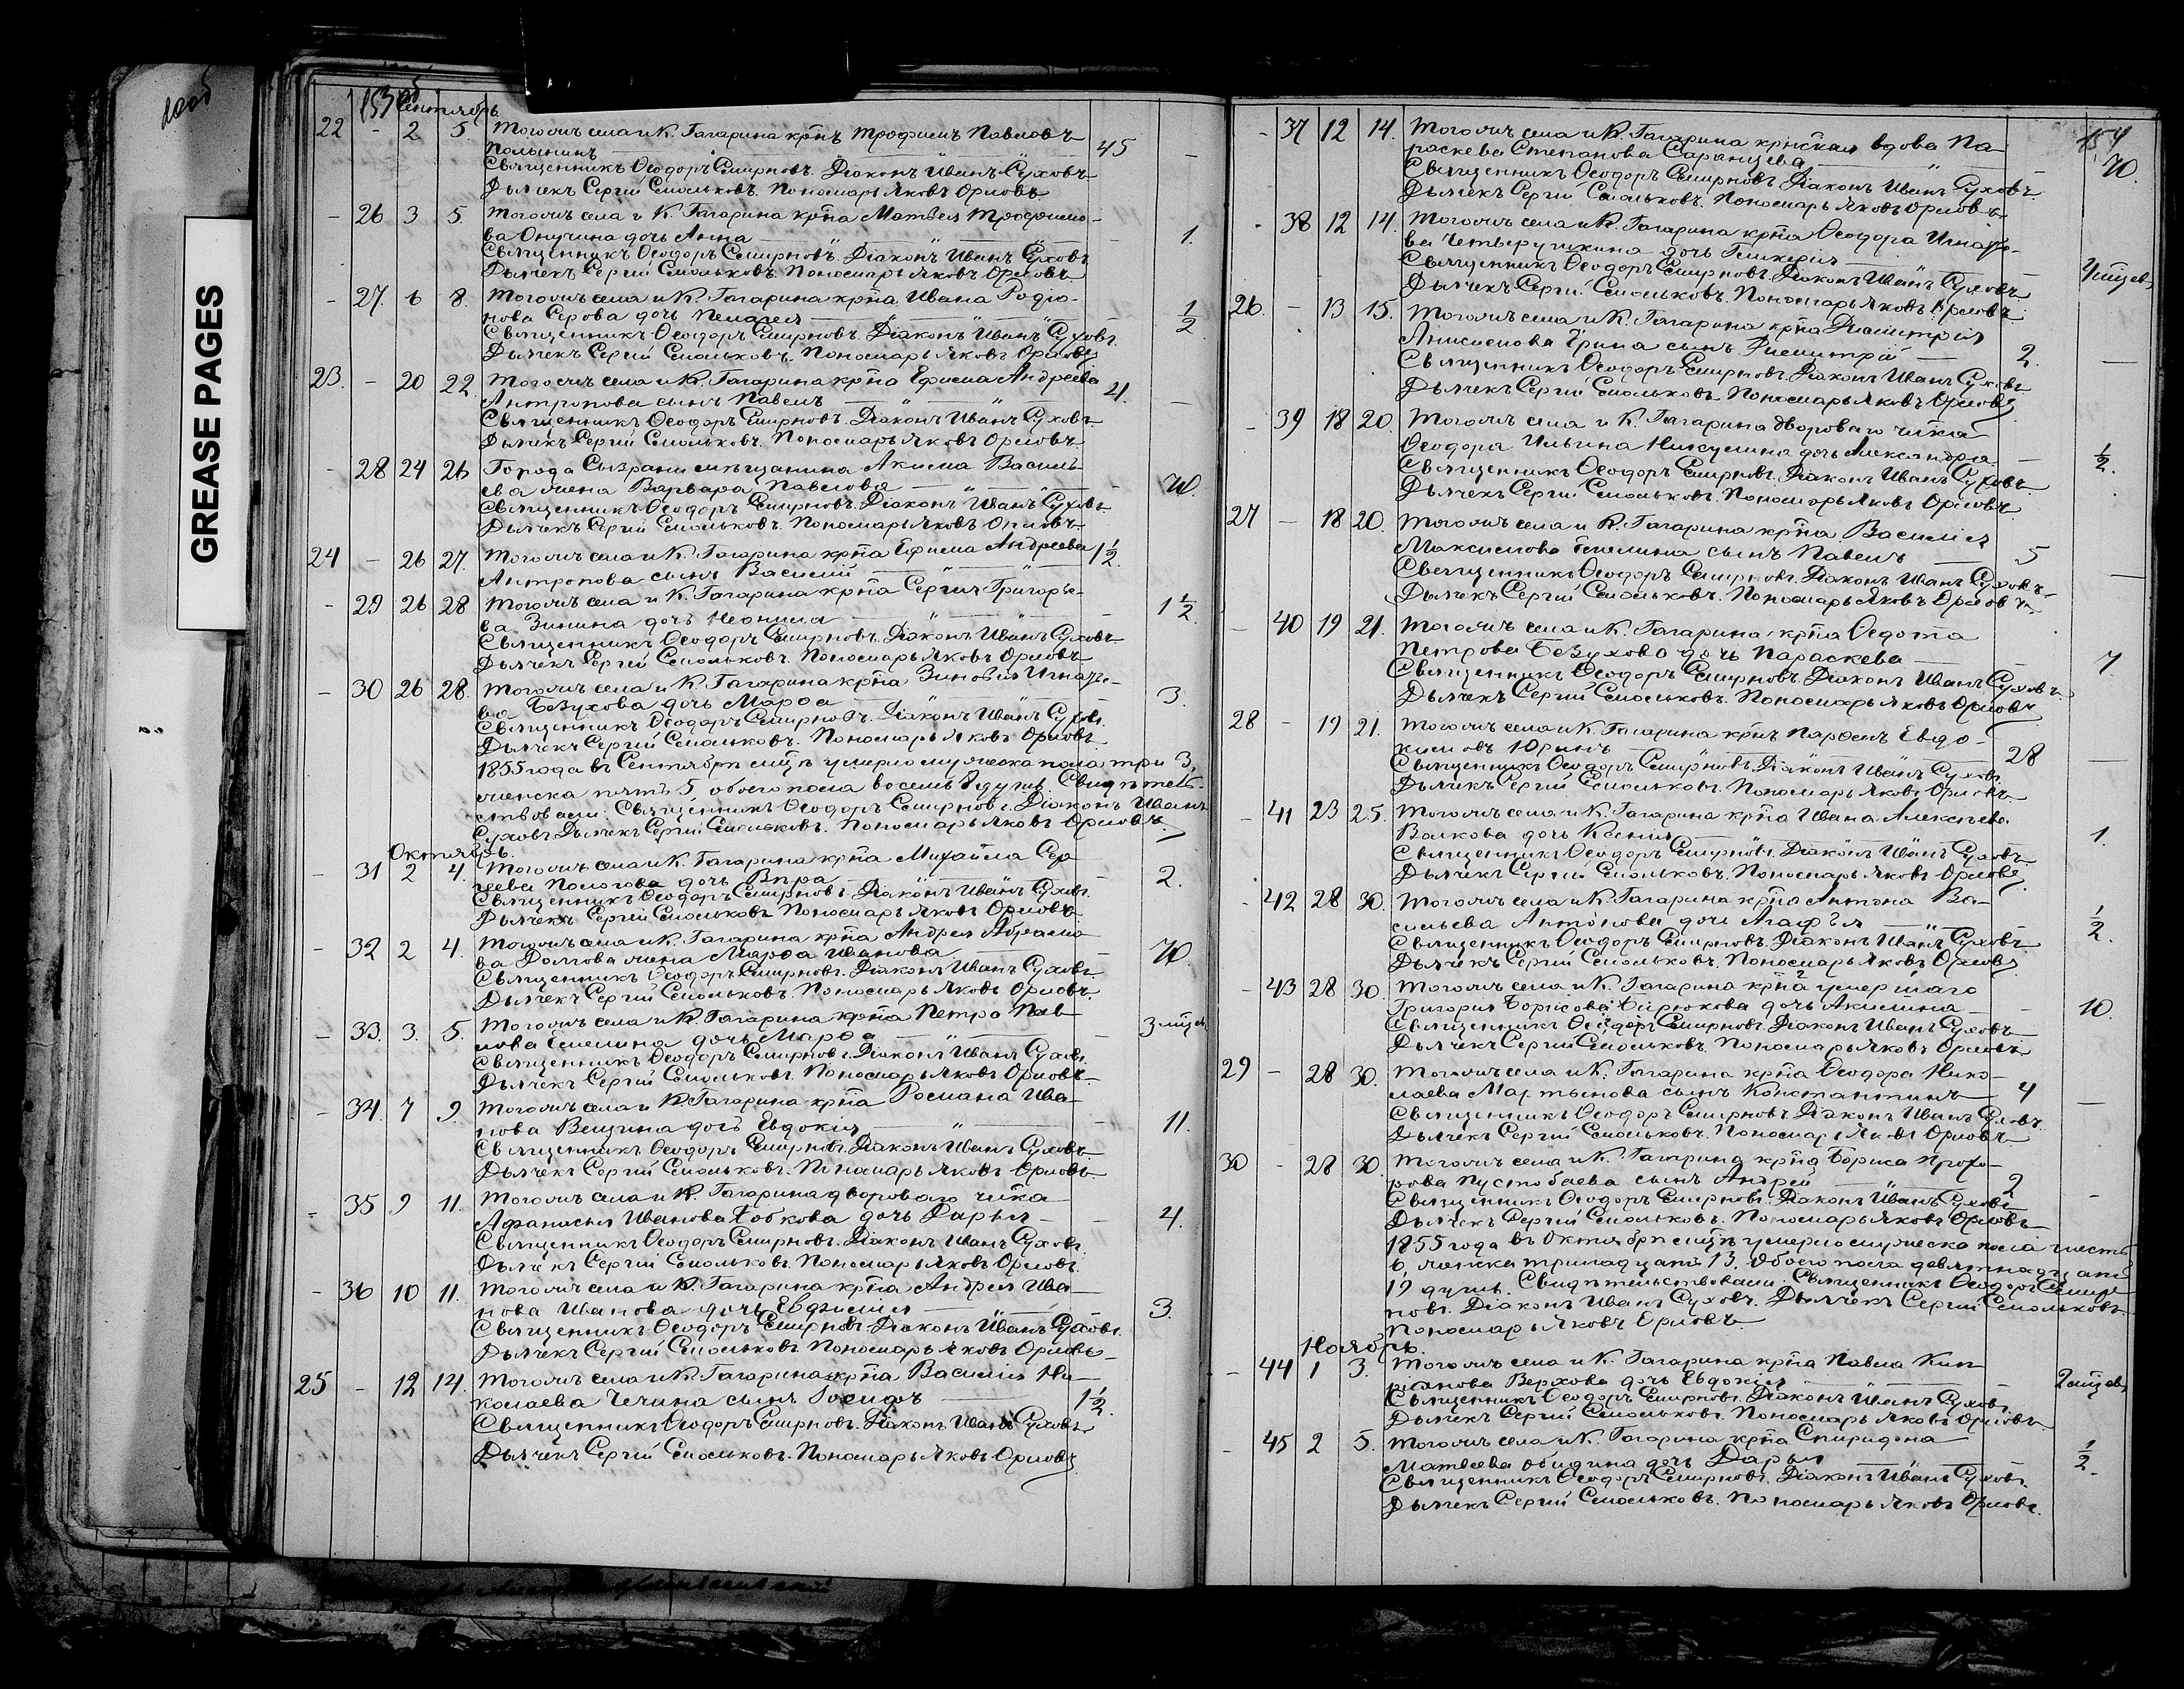 GREASE PAGES
153 об
Сентябрь
22 - 2 5. Тогожъ села и К. Гагарина крнъ Трофимъ Павловъ
Полынинъ 45 -
Священникъ Ѳеодоръ Смирновъ. Діаконъ Иванъ Суховъ
Дьячекъ Сергій Смольковъ. Пономарь Яковъ Орловъ
- 26 3 5. Тогожъ села и К. Гагарина крна Матвея Трофимо-
ва Онучина дочь Анна - 1.
Священникъ Ѳеодоръ Смирновъ. Діаконъ Иванъ Суховъ
Дьячекъ Сергій Смольковъ. Пономарь Яковъ Орловъ
- 27. 6 8. Тогожъ села и К. Гагарина крна Ивана Родіо-
нова Серова дочь Пелагея 1/2
Священникъ Ѳеодоръ Смирновъ. Діаконъ Иванъ Суховъ.
Дьячекъ Сергій Смольковъ. Пономарь Яковъ Орловъ
23. - 20 22. Тогожъ села и К. Гагарина крна Ефима Андреева
Антропова сынъ Павелъ 4. -
Священникъ Ѳеодоръ Смирновъ. Діаконъ Иванъ Суховъ
Дьячекъ Сергій Смольковъ. Пономарь Яковъ Орловъ
- 28 24 26 Города Сызрани мѣщанина Акима Василь-
ева жена Варвара Павлова - 70.
Священникъ Ѳеодоръ Смирновъ. Діаконъ Иванъ Суховъ
Дьячекъ Сергій Смольковъ. Пономарь Яковъ Орловъ
24 - 26 27. Тогожъ села и К. Гагарина крна Ефима Андреева 1 1/2.
Антропова сынъ Василій
- 29 26 28 Тогожъ села и К. Гагарина крна Сергія Григорье-
ва Зинина дочь Неонила - 1 1/2.
Священникъ Ѳеодоръ Смирновъ. Діаконъ Иванъ Суховъ
Дьячекъ Сергій Смольковъ. Пономарь Яковъ Орловъ
- 30 26 28. Тогожъ села и К. Гагарина крна Зиновія Игнать-
ва Безухова дочь Марѳа 3.
Священникъ Ѳеодоръ Смирновъ. Діаконъ Иванъ Суховъ.
Дьячекъ Сергій Смольковъ. Пономарь Яковъ Орловъ
1855 года въ Сентябрѣ мцѣ умерло мужеска пола три 3,
женска пять 5 обоего пола восемь 8 душъ. Свидѣтель-
ствовали: Священникъ Ѳеодоръ Смирновъ. Діаконъ Иванъ
Суховъ Дьячекъ Сергій Смольковъ. Пономарь Яковъ Орловъ
Октябрь.
- 31 2 4. Тогожъ села и К. Гагарина крна Михайла Сер-
геева дочь Вѣра - 2.
Священникъ Ѳеодоръ Смирновъ. Діаконъ Иванъ Суховъ.
Дьячекъ Сергій Смольковъ Пономарь Яковъ Орловъ
- 32 2 4. Тогожъ села и К. Гагарина крна Андрея Абрамо-
ва Долгова жена Марѳа Иванова - 70.
Священникъ Ѳеодоръ Смирновъ. Діаконъ Иванъ Суховъ.
Дьячекъ Сергій Смольковъ. Пономарь Яковъ Орловъ.
- 33. 3. 5. Тогожъ села и К. Гагарина крна Петра Пав-
лова дочь Марѳа - 3 мцев
Священникъ Ѳеодоръ Смирновъ. Діаконъ Иванъ Суховъ.
Дьячекъ Сергій Смольковъ. Пономарь Яковъ Орловъ.
- 34. 7 9. Тогожъ села и К. Гагарина крна Романа Ива-
нова дочь Евдокія - 11.
Священникъ Ѳеодоръ Смирновъ. Діаконъ Иванъ Суховъ.
Дьячекъ Сергій Смольковъ. Пономарь Яковъ Орловъ.
- 35 9 11. Тогожъ села и К. Гагарина двороваго члка
Афанасія Иванова Бобкова дочь Дарья - 4.
Священникъ Ѳеодоръ Смирновъ. Діаконъ Иванъ Суховъ.
Дьячекъ Сергій Смольковъ. Пономарь Яковъ Орловъ.
- 36 10 11. Тогожъ села и К. Гагарина крна Андрея Ива-
нова Иванова дочь Евфимія 3.
Священникъ Ѳеодоръ Смирновъ. Діаконъ Иванъ Суховъ.
Дьячекъ Сергій Смольковъ Пономарь Яковъ Орловъ
25 - 12 14. Тогожъ села и К. Гагарина крна Василія Ни-
колаева Чечина сынъ Іосифъ 1 1/2.
Священникъ Ѳеодоръ Смирновъ. Діаконъ Иванъ Суховъ
Дьячекъ Сергій Смольковъ. Пономарь Яковъ Орловъ
154
- 37 12 14. Тогожъ села и К. Гагарина крнская вдова Па-
раскева Степанова Саранцева - 70.
Священникъ Ѳеодоръ Смирновъ Діаконъ Иванъ Суховъ.
Дьячекъ Сергій Смольковъ. Пономарь Яковъ Орловъ
- 38 12 14. Тогожъ села и К. Гагарина крна Ѳеодора Игнать-
ва Четверушкина дочь Гликерія 4 мцев
Священникъ Ѳеодоръ Смирновъ. Діаконъ Иванъ Суховъ
Дьячекъ Сергій Смольковъ. Пономарь Яковъ Орловъ.
26. - 13 15. Тогожъ села и К. Гагарина крна Димитрія
Анисимова сынъ Димитрій 2. -
Священникъ Ѳеодоръ Смирновъ. Діаконъ Иванъ Суховъ
Дьячекъ Сергій Смольковъ. Пономарь Яковъ Орловъ
- 39 18 20. Тогожъ села и К. Гагарина двороваго члка
Ѳеодора Ильина Никулина дочь Александра - 1/2.
Священникъ Ѳеодоръ Смирновъ. Діаконъ Иванъ Суховъ.
Дьячекъ Сергій Смольковъ. Пономарь Яковъ Орловъ.
27 - 18 20. Тогожъ села и К. Гагарина крна Василія
Максимова сынъ Павелъ 5 -
Священникъ Ѳеодоръ Смирновъ. Діаконъ Иванъ Суховъ.
Дьячекъ Сергій Смольковъ. Пономарь Яковъ Орловъ.
- 40 19 21. Тогожъ села и К. Гагарина крна Ѳедота
Петрова Безухова дочь Параскева - 7.
Священникъ Ѳеодоръ Смирновъ. Діаконъ Иванъ Суховъ.
Дьячекъ Сергій Смольковъ. Пономарь Яковъ Орловъ
28 - 19 21. Тогожъ села и К. Гагарина крнъ Парѳенъ Евдо-
кимовъ Юринъ 28
Священникъ Ѳеодоръ Смирновъ. Діаконъ Иванъ Суховъ
Дьячекъ Сергій Смольковъ. Пономарь Яковъ Орловъ.
- 41 23 25. Тогожъ села и К. Гагарина крна Ивана Алексѣева
Валкова дочь Ксенія 1.
Священникъ Ѳеодоръ Смирновъ. Діаконъ Иванъ Суховъ
Дьячекъ Сергій Смольковъ. Пономарь Яковъ Орловъ
- 42 28 30. Тогожъ села и К. Гагарина крна Антона Ва-
сильева Антонова дочь Агафія 1/2.
Священникъ Ѳеодоръ Смирновъ. Діаконъ Иванъ Суховъ
Дьячекъ Сергій Смольковъ. Пономарь Яковъ Орловъ
- 43 28 30. Тогожъ села и К. Гагарина крна умершаго
Григорія Борисова Бирюкова дочь Акилина - 10.
Священникъ Ѳеодоръ Смирновъ. Діаконъ Иванъ Суховъ
Дьячекъ Сергій Смольковъ. Пономарь Яковъ Орловъ
29 - 28 30. Тогожъ села и К. Гагарина крна Ѳеодора Нико-
лаева Мартынова сынъ Константинъ 4 -
Священникъ Ѳеодоръ Смирновъ Діаконъ Иванъ Суховъ.
Дьячекъ Сергій Смольковъ. Пономарь Яковъ Орловъ
30 - 28 30. Тогожъ села и К. Гагарина крна Бориса Прохо-
рова Пустобаева сынъ Андрей 2 -
Священникъ Ѳеодоръ Смирновъ. Діаконъ Иванъ Суховъ
Дьячекъ Сергій Смольковъ. Пономарь Яковъ Орловъ
1855 года въ Октябрѣ мцѣ умерло мужеска пола шесть
6, женска тринадцать 13. Обоего пола девятнадцать
19 душъ. Свидѣтельствовали: Священникъ Ѳеодоръ Смир-
новъ. Діаконъ Иванъ Суховъ. Дьячекъ Сергій Смольковъ.
Пономарь Яковъ Орловъ.
Ноябрь.
- 44 1 3. Тогожъ села и К. Гагарина крна Павла Кип-
ріянова Верхова дочь Евдокія 2 мцев
Священникъ Ѳеодоръ Смирновъ. Діаконъ Иванъ Суховъ.
Дьячекъ Сергій Смольковъ. Пономарь Яковъ Орловъ.
- 45 2 5. Тогожъ села и К. Гагарина крна Спиридона
Матвеева дочь Дарья 1/2.
Священникъ Ѳеодоръ Смирновъ. Діаконъ Иванъ Суховъ.
Дьячекъ Сергій Смольковъ. Пономарь Яковъ Орловъ.